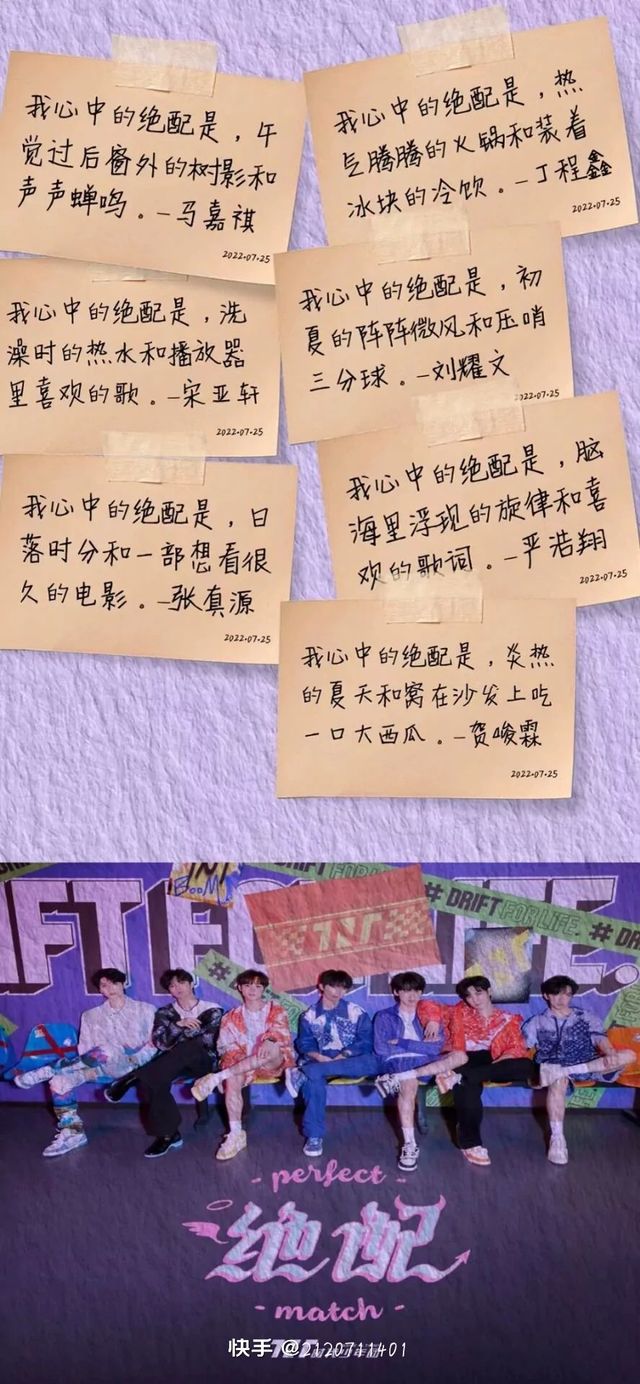 我心中的绝配是，午
觉过后窗外的树影和
声声蝉鸣。–马嘉祺
2022.07.25
我心中的绝配是，热
气腾腾的火锅和装着
冰块的冷饮。–丁程鑫
2022.07.25
我心中的绝配是，洗
澡时的热水和播放器
里喜欢的歌。–宋亚轩
2022.07.25
我心中的绝配是，初
夏的阵阵微风和压哨
三分球。–刘耀文
2022.07.25
我心中的绝配是，日
落时分和一部想看很
久的电影。–张真源
2022.07.25
我心中的绝配是，脑
海里浮现的旋律和喜
欢的歌词。–严浩翔
2022.07.25
我心中的绝配是，炎热
的夏天和窝在沙发上吃
一口大西瓜。–贺峻霖
2022.07.25
BOOM
IFT FOR LIFE.
TNT
# DRIFT FOR LIFE. # DR
# DRIFT FOR
- perfect -
绝配
- match -
快手 @2120711401